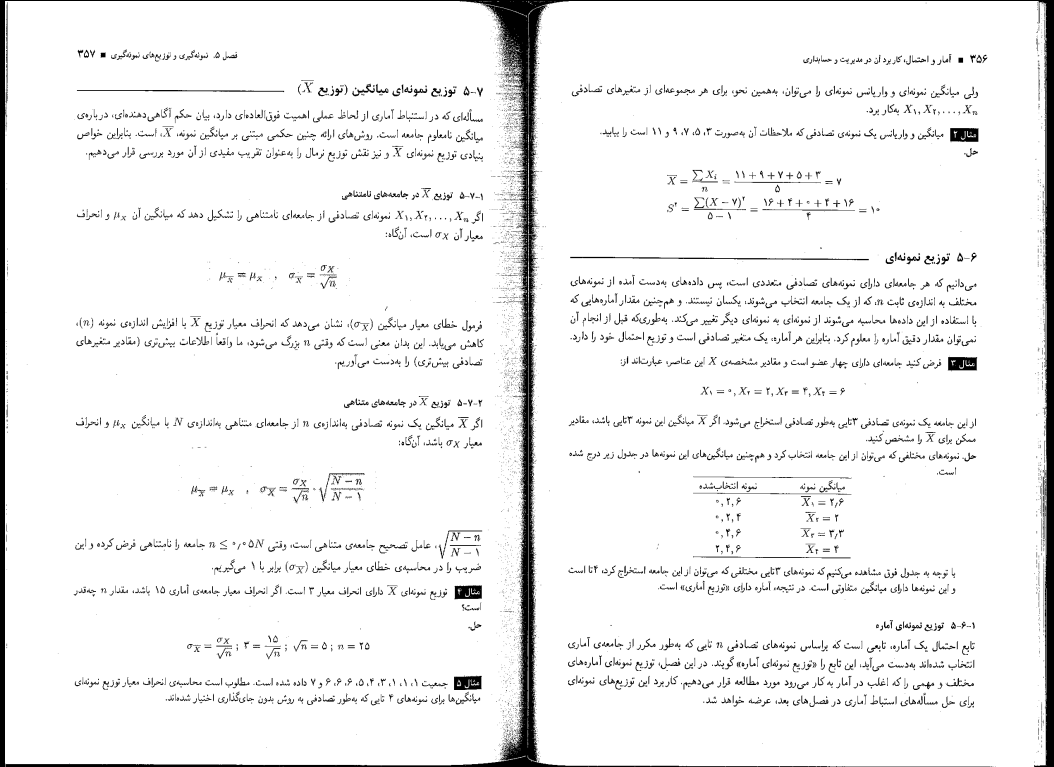 ۳۵۶ ■ آمار و احتمال، کاربرد آن در مدیریت و حسابداری
ولی میانگین نمونه‌ای و واریانس نمونه‌ای را می‌توان، به‌همین نحو، برای هر مجموعه‌ای از متغیرهای تصادفی
X₁, X₂, . . . , Xₙ به‌کار برد.
مثال ۲ میانگین و واریانس یک نمونه‌ی تصادفی که ملاحظات آن به‌صورت ۳، ۵، ۷، ۹ و ۱۱ است را بیابید.
حل.
X̄ = ∑Xᵢ / n = (۱۱ + ۹ + ۷ + ۵ + ۳) / ۵ = ۷
S² = ∑(X − ۷)² / (۵ − ۱) = (۱۶ + ۴ + ۰ + ۴ + ۱۶) / ۴ = ۱۰
۵-۶ توزیع نمونه‌ای
می‌دانیم که هر جامعه‌ای دارای نمونه‌های تصادفی متعددی است، پس داده‌های به‌دست آمده از نمونه‌های
مختلف به اندازه‌ی ثابت n، که از یک جامعه انتخاب می‌شوند، یکسان نیستند. و هم‌چنین مقدار آماره‌هایی که
با استفاده از این داده‌ها محاسبه می‌شوند از نمونه‌ای به نمونه‌ای دیگر تغییر می‌کند. به‌طوری‌که قبل از انجام آن
نمی‌توان مقدار دقیق آماره را معلوم کرد. بنابراین هر آماره، یک متغیر تصادفی است و توزیع احتمال خود را دارد.
مثال ۳ فرض کنید جامعه‌ای دارای چهار عضو است و مقادیر مشخصه‌ی X این عناصر، عبارت‌اند از:
X₁ = ۰, X₂ = ۲, X₃ = ۴, X₴ = ۶
از این جامعه یک نمونه‌ی تصادفی ۳تایی به‌طور تصادفی استخراج می‌شود. اگر X̄ میانگین این نمونه ۳تایی باشد، مقادیر
ممکن برای X̄ را مشخص کنید.
حل. نمونه‌های مختلفی که می‌توان از این جامعه انتخاب کرد و هم‌چنین میانگین‌های این نمونه‌ها در جدول زیر درج شده
است.
میانگین نمونه نمونه انتخاب‌شده
۰, ۲, ۶ X̄₁ = ۲٫۶
۰, ۲, ۴ X̄₂ = ۲
۰, ۴, ۶ X̄₃ = ۳٫۳
۲, ۴, ۶ X̄₄ = ۴
با توجه به جدول فوق مشاهده می‌کنیم که نمونه‌های ۳تایی مختلفی که می‌توان از این جامعه استخراج کرد، ۴تا است
و این نمونه‌ها دارای میانگین متفاوتی است. در نتیجه، آماره دارای «توزیع آماری» است.
۵-۶-۱ توزیع نمونه‌ای آماره
تابع احتمال یک آماره، تابعی است که براساس نمونه‌های تصادفی n تایی که به‌طور مکرر از جامعه‌ی آماری
انتخاب شده‌اند به‌دست می‌آید، این تابع را «توزیع نمونه‌ای آماره» گویند. در این فصل، توزیع نمونه‌ای آماره‌های
مختلف و مهمی را که اغلب در آمار به کار می‌رود مورد مطالعه قرار می‌دهیم. کاربرد این توزیع‌های نمونه‌ای
برای حل مسأله‌های استنباط آماری در فصل‌های بعد، عرضه خواهد شد.
فصل ۵. نمونه‌گیری و توزیع‌های نمونه‌گیری ■ ۳۵۷
۵-۷ توزیع نمونه‌ای میانگین (توزیع X̄)
مسأله‌ای که در استنباط آماری از لحاظ عملی اهمیت فوق‌العاده‌ای دارد، بیان حکم آگاهی‌دهنده‌ای، درباره‌ی
میانگین نامعلوم جامعه است. روش‌های ارائه چنین حکمی مبتنی بر میانگین نمونه، X̄، است. بنابراین خواص
بنیادی توزیع نمونه‌ای X̄ و نیز نقش توزیع نرمال را به‌عنوان تقریب مفیدی از آن مورد بررسی قرار می‌دهیم.
۵-۷-۱ توزیع X̄ در جامعه‌های نامتناهی
اگر X₁, X₂, . . . , Xₙ نمونه‌ای تصادفی از جامعه‌ای نامتناهی را تشکیل دهد که میانگین آن μ_X و انحراف
معیار آن σ_X است، آن‌گاه:
μ_X̄ = μ_X , σ_X̄ = σ_X / √n
فرمول خطای معیار میانگین (σ_X̄)، نشان می‌دهد که انحراف معیار توزیع X̄ با افزایش اندازه‌ی نمونه (n)،
کاهش می‌یابد. این بدان معنی است که وقتی n بزرگ می‌شود، ما واقعاً اطلاعات بیش‌تری (مقادیر متغیرهای
تصادفی بیش‌تری) را به‌دست می‌آوریم.
۵-۷-۲ توزیع X̄ در جامعه‌های متناهی
اگر X̄ میانگین یک نمونه تصادفی به‌اندازه‌ی n از جامعه‌ای متناهی به‌اندازه‌ی N با میانگین μ_X و انحراف
معیار σ_X باشد، آن‌گاه:
μ_X̄ = μ_X , σ_X̄ = σ_X / √n · √((N − n) / (N − ۱))
√((N − n) / (N − ۱))، عامل تصحیح جامعه‌ی متناهی است، وقتی n ≤ ۰٫۰۵N جامعه را نامتناهی فرض کرده و این
ضریب را در محاسبه‌ی خطای معیار میانگین (σ_X̄) برابر با ۱ می‌گیریم.
مثال ۴ توزیع نمونه‌ای X̄ دارای انحراف معیار ۳ است. اگر انحراف معیار جامعه‌ی آماری ۱۵ باشد، مقدار n چه‌قدر
است؟
حل.
σ_X̄ = σ_X / √n ; ۳ = ۱۵ / √n ; √n = ۵ ; n = ۲۵
مثال ۵ جمعیت ۱، ۱، ۱، ۳، ۴، ۵، ۶، ۶، ۶ و ۷ داده شده است. مطلوب است محاسبه‌ی انحراف معیار توزیع نمونه‌ای
میانگین‌ها برای نمونه‌های ۴ تایی که به‌طور تصادفی به روش بدون جای‌گذاری اختیار شده‌اند.